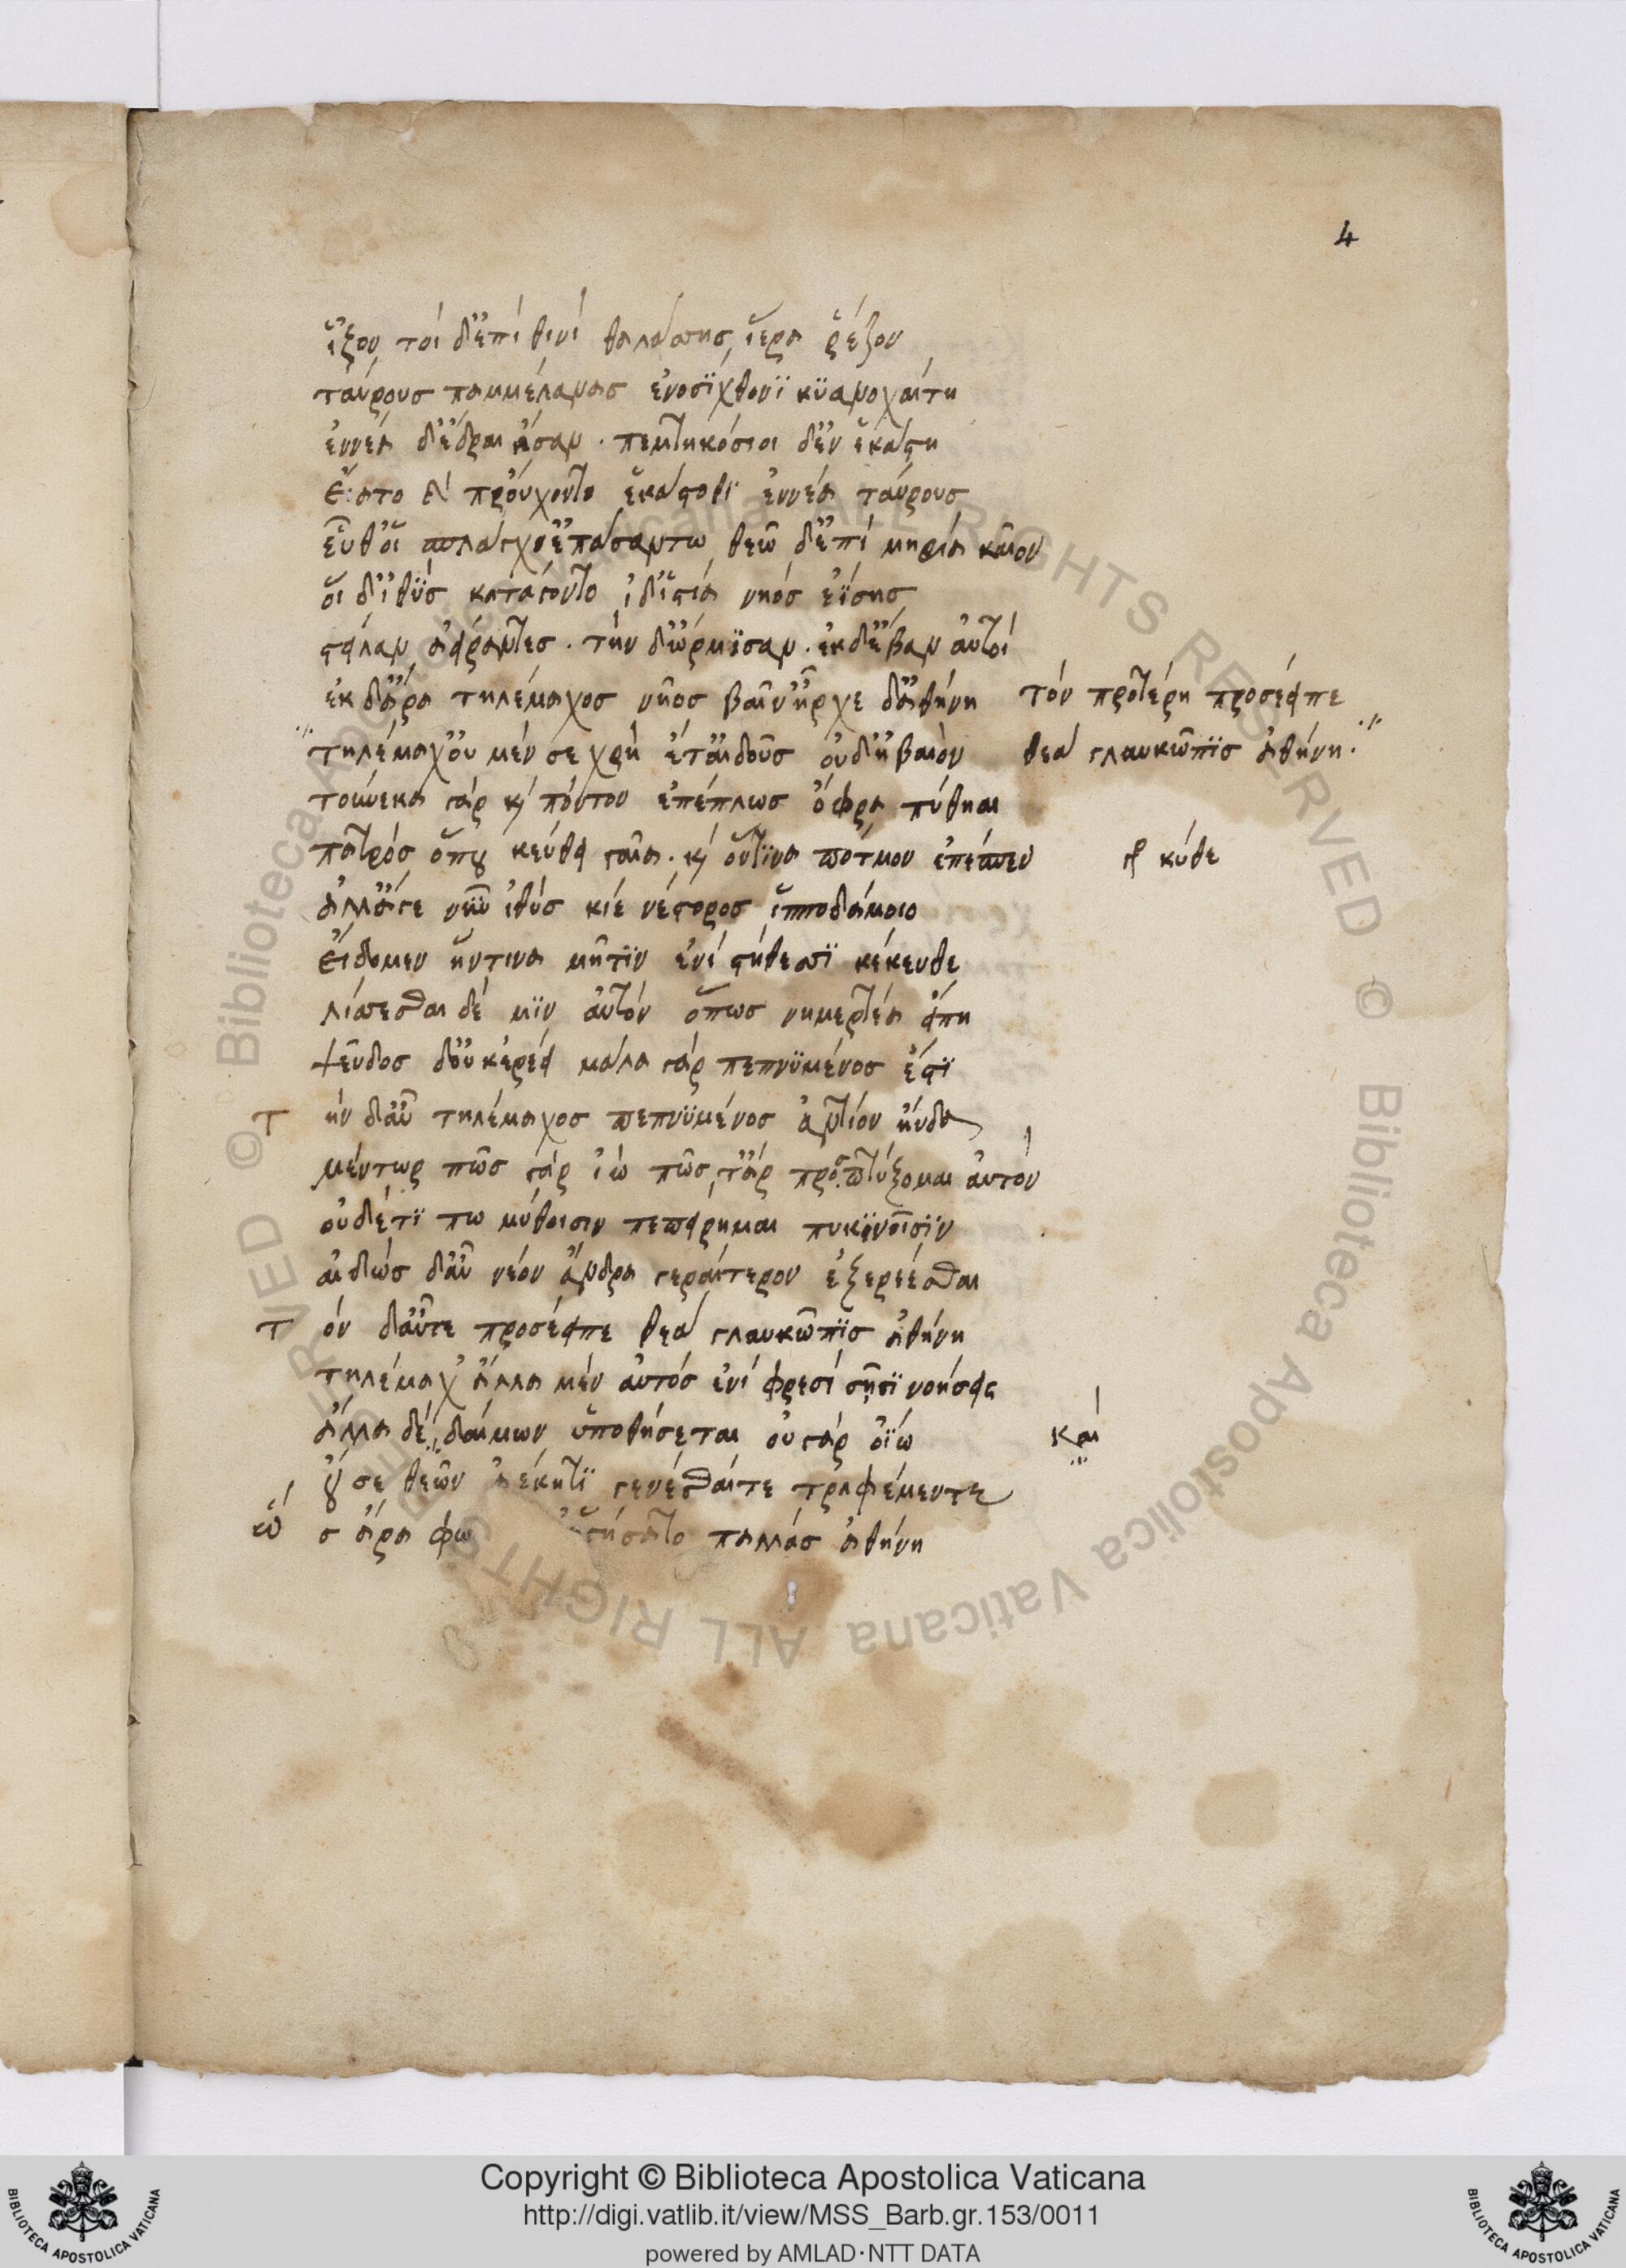 4
ἷξον, τοὶ δ' ἐπὶ θινὶ θαλάσσης ἱερὰ ῥέζον
ταύρους παμμέλανας ἐνοσίχθονϊ κϋανοχαίτη
ἐννέα δ' ἕδραι ἔσαν · πεντηκόσιοι δ' ἐν ἑκάστη
εἵατο καὶ προύχοντο ἑκάστοθϊ ἐννέα ταύρους
εὖθ' οἱ σπλάγχν' ἐπάσαντω, θεῶ δ' ἐπὶ μηρία καῖον
οἱ δ' ἰθὺς κατάγοντο ἰδ' ἱστία νηὸς ἐΐσης
στεῖλαν ἀείραντες · τὴν δ' ὥρμϊσαν · ἐκ δ' ἔβαν αὐτοὶ
ἐκ δ' ἄρα τηλέμαχος νηὸς βαῖν' ἦρχε δ' ἀθήνη τὸν προτέρη προσέειπε
τηλέμαχ' οὐ μέν σε χρὴ ἔτ' αἰδοῦς οὐδ' ἠβαιὸν θεὰ γλαυκῶπϊς ἀθήνη·
τούνεκα γὰρ καὶ πόντον ἐπέπλως ὄφρα πύθηαι
πατρός ὅπου κεύθει γαῖα · καὶ ὅντϊνα πότμον ἐπέσπεν γρ κύθε
ἀλλ' ἄγε νῦν ἰθὺς κίε νέστορος ἱπποδάμοιο
εἴδομεν ἥντινα μῆτϊν ἐνὶ στήθεσσϊ κέκευθε
λίσσεσθαι δέ μϊν αὐτὸν ὅπως νημερτέα εἴπη
ψεῦδος δ' οὐκ ἐρέει μάλα γὰρ πεπνϋμένος ἐστϊ
τ ὴν δ' αὖ τηλέμαχος πεπνϋμένος ἀντίον ηὔδα
μέντωρ πῶς τ' ἄρ ἴω πῶς τ' ἂρ προσπτύξομαι αὐτόν
οὐδέ τϊ πω μύθοισιν πεπείρημαι πυκϊνοῖσϊν
αἰδὼς δ' αὖ νέον ἄνδρα γεραίτερον ἐξερέεσθαι
τ ὸν δ' αὖτε προσέειπε θεὰ γλαυκῶπϊς ἀθήνη
τηλέμαχ' ἄλλα μὲν αὐτὸς ἐνὶ φρεσὶ σῆσϊ νοήσεις
ἄλλα δέ, δαίμων ὑποθήσεται οὐ γὰρ ὀΐω καὶ
οὔ σε θεῶν ἀέκητϊ γενέσθαι τε τραφέμεν τε
ὣ ς ἄρα φω ἡγήσατο παλλὰς ἀθήνη
Copyright © Biblioteca Apostolica Vaticana
http://digi.vatlib.it/view/MSS_Barb.gr.153/0011
powered by AMLAD·NTT DATA